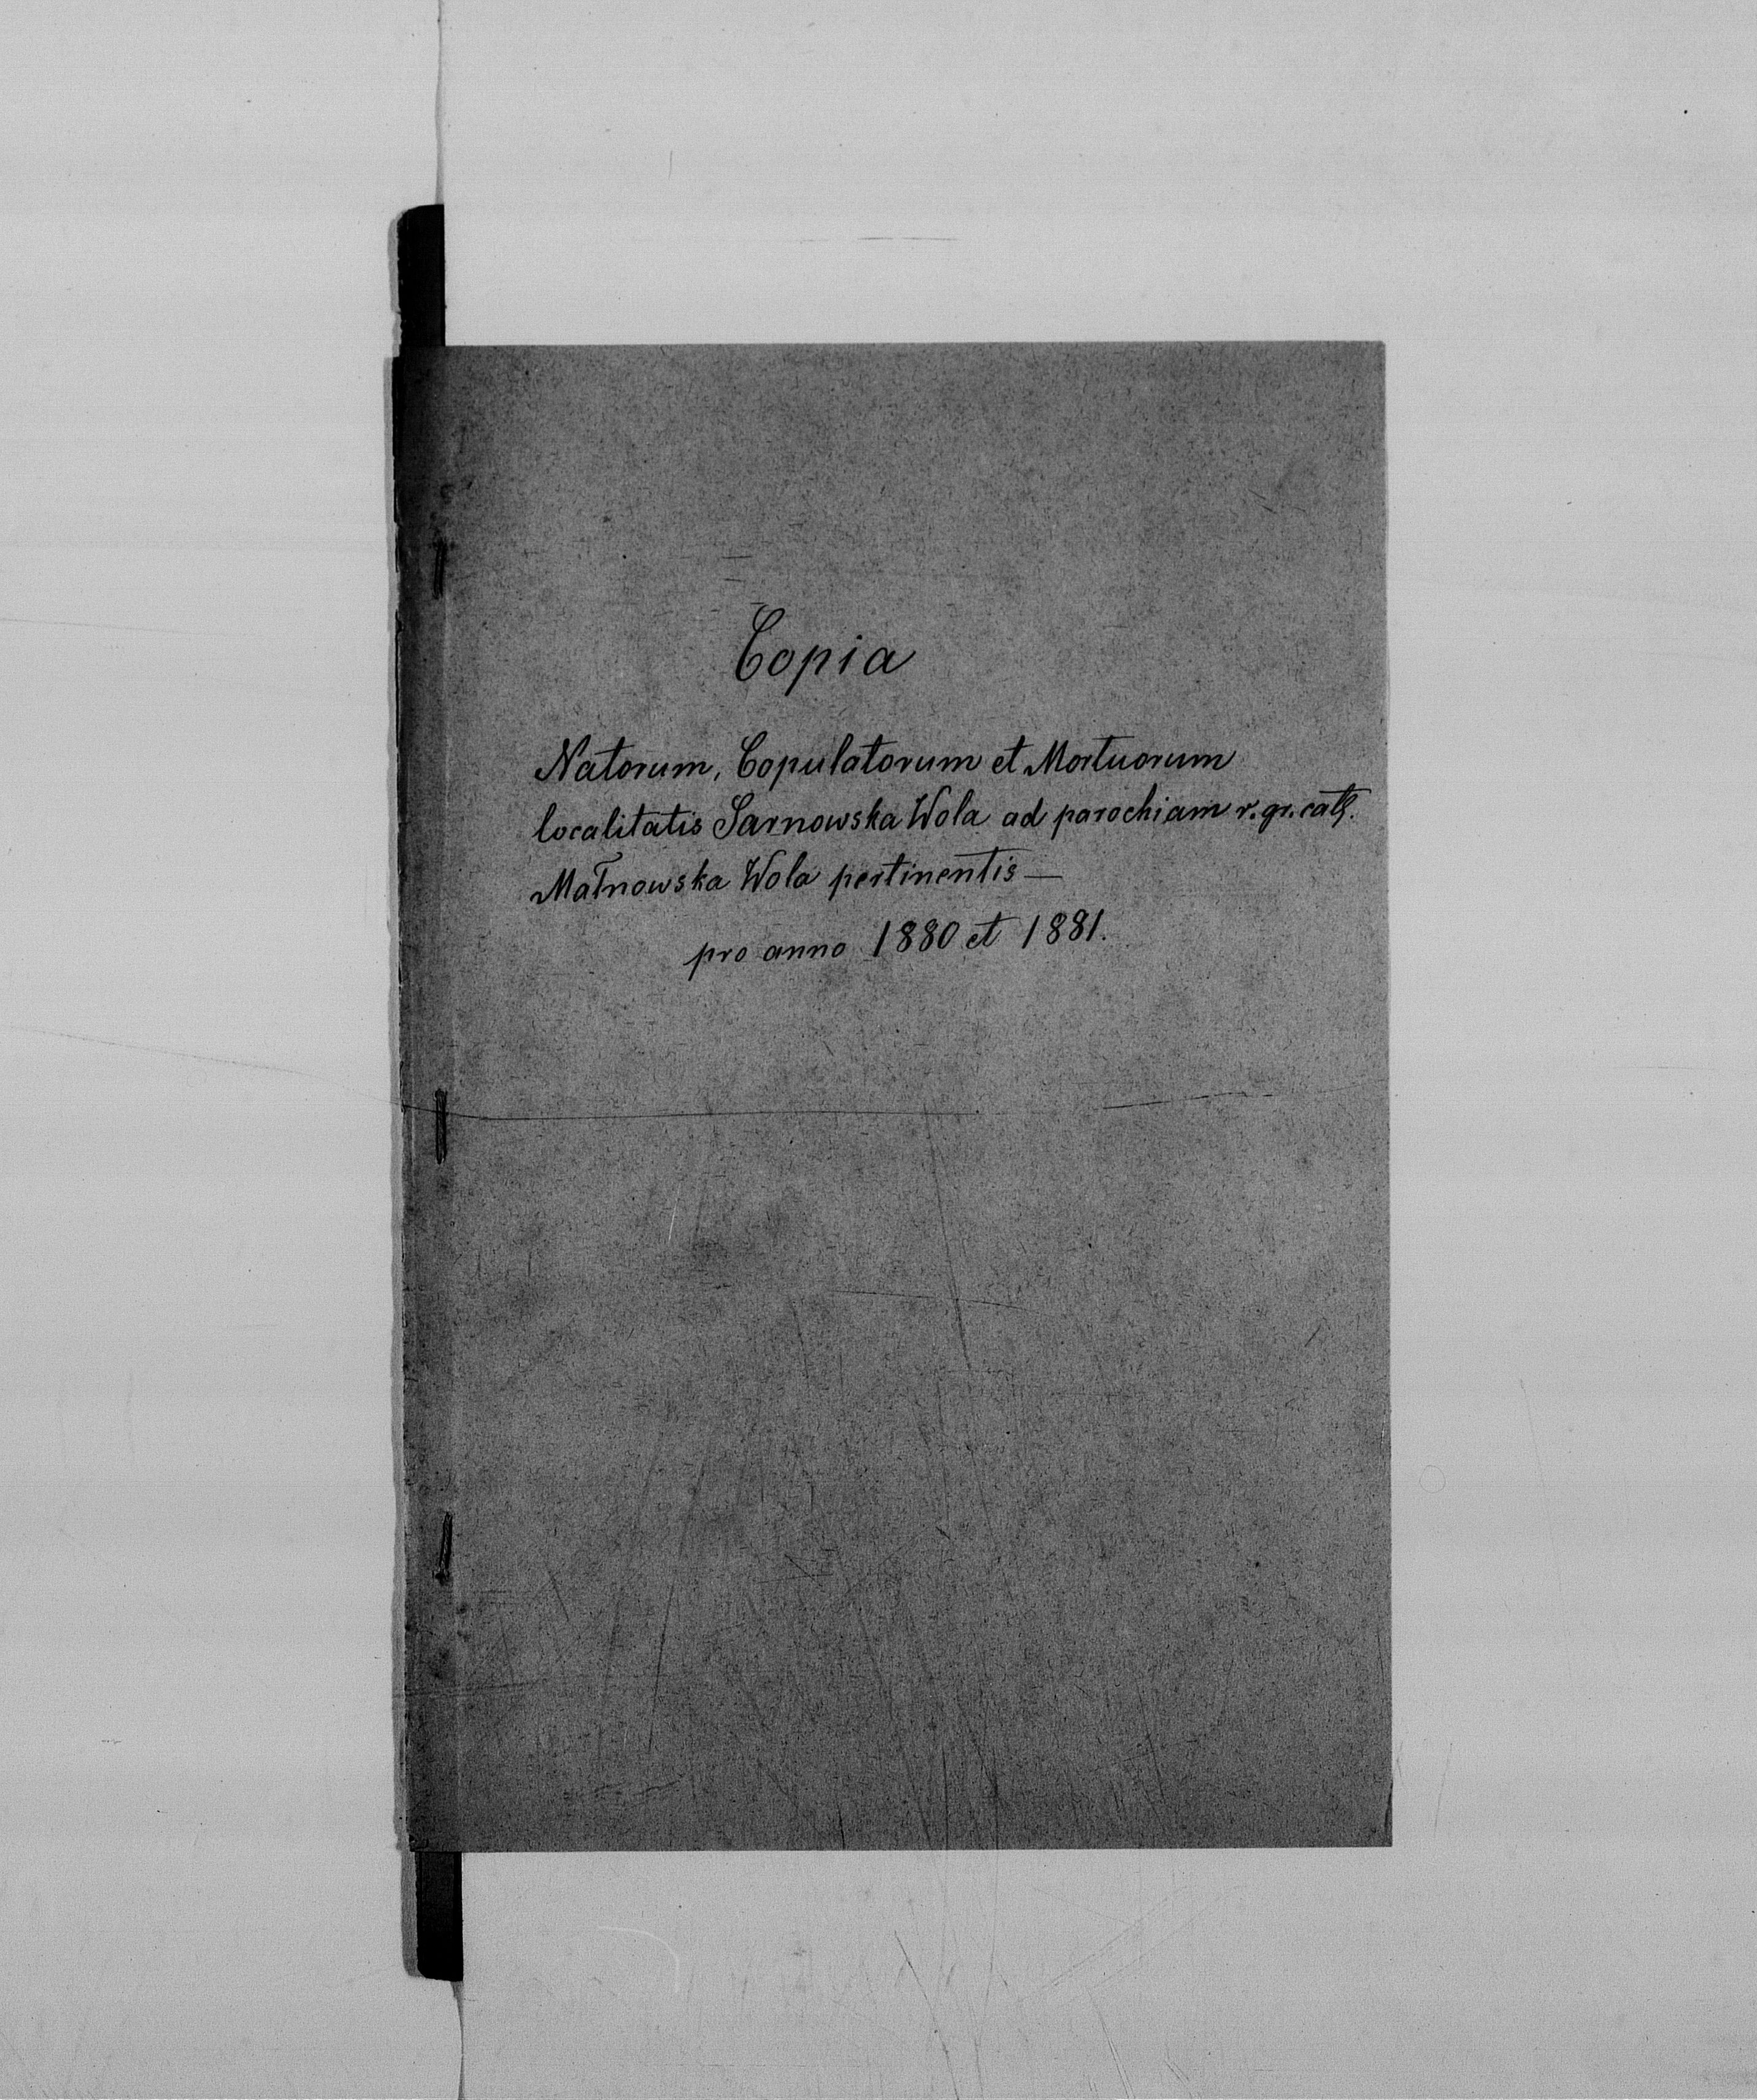 Copia
Natorum, Copulatorum et Mortuorum
localitatis Sarnowska Wola ad parochiam r. gr. cath.
Małnowska Wola pertinentis —
pro anno 1880 et 1881.